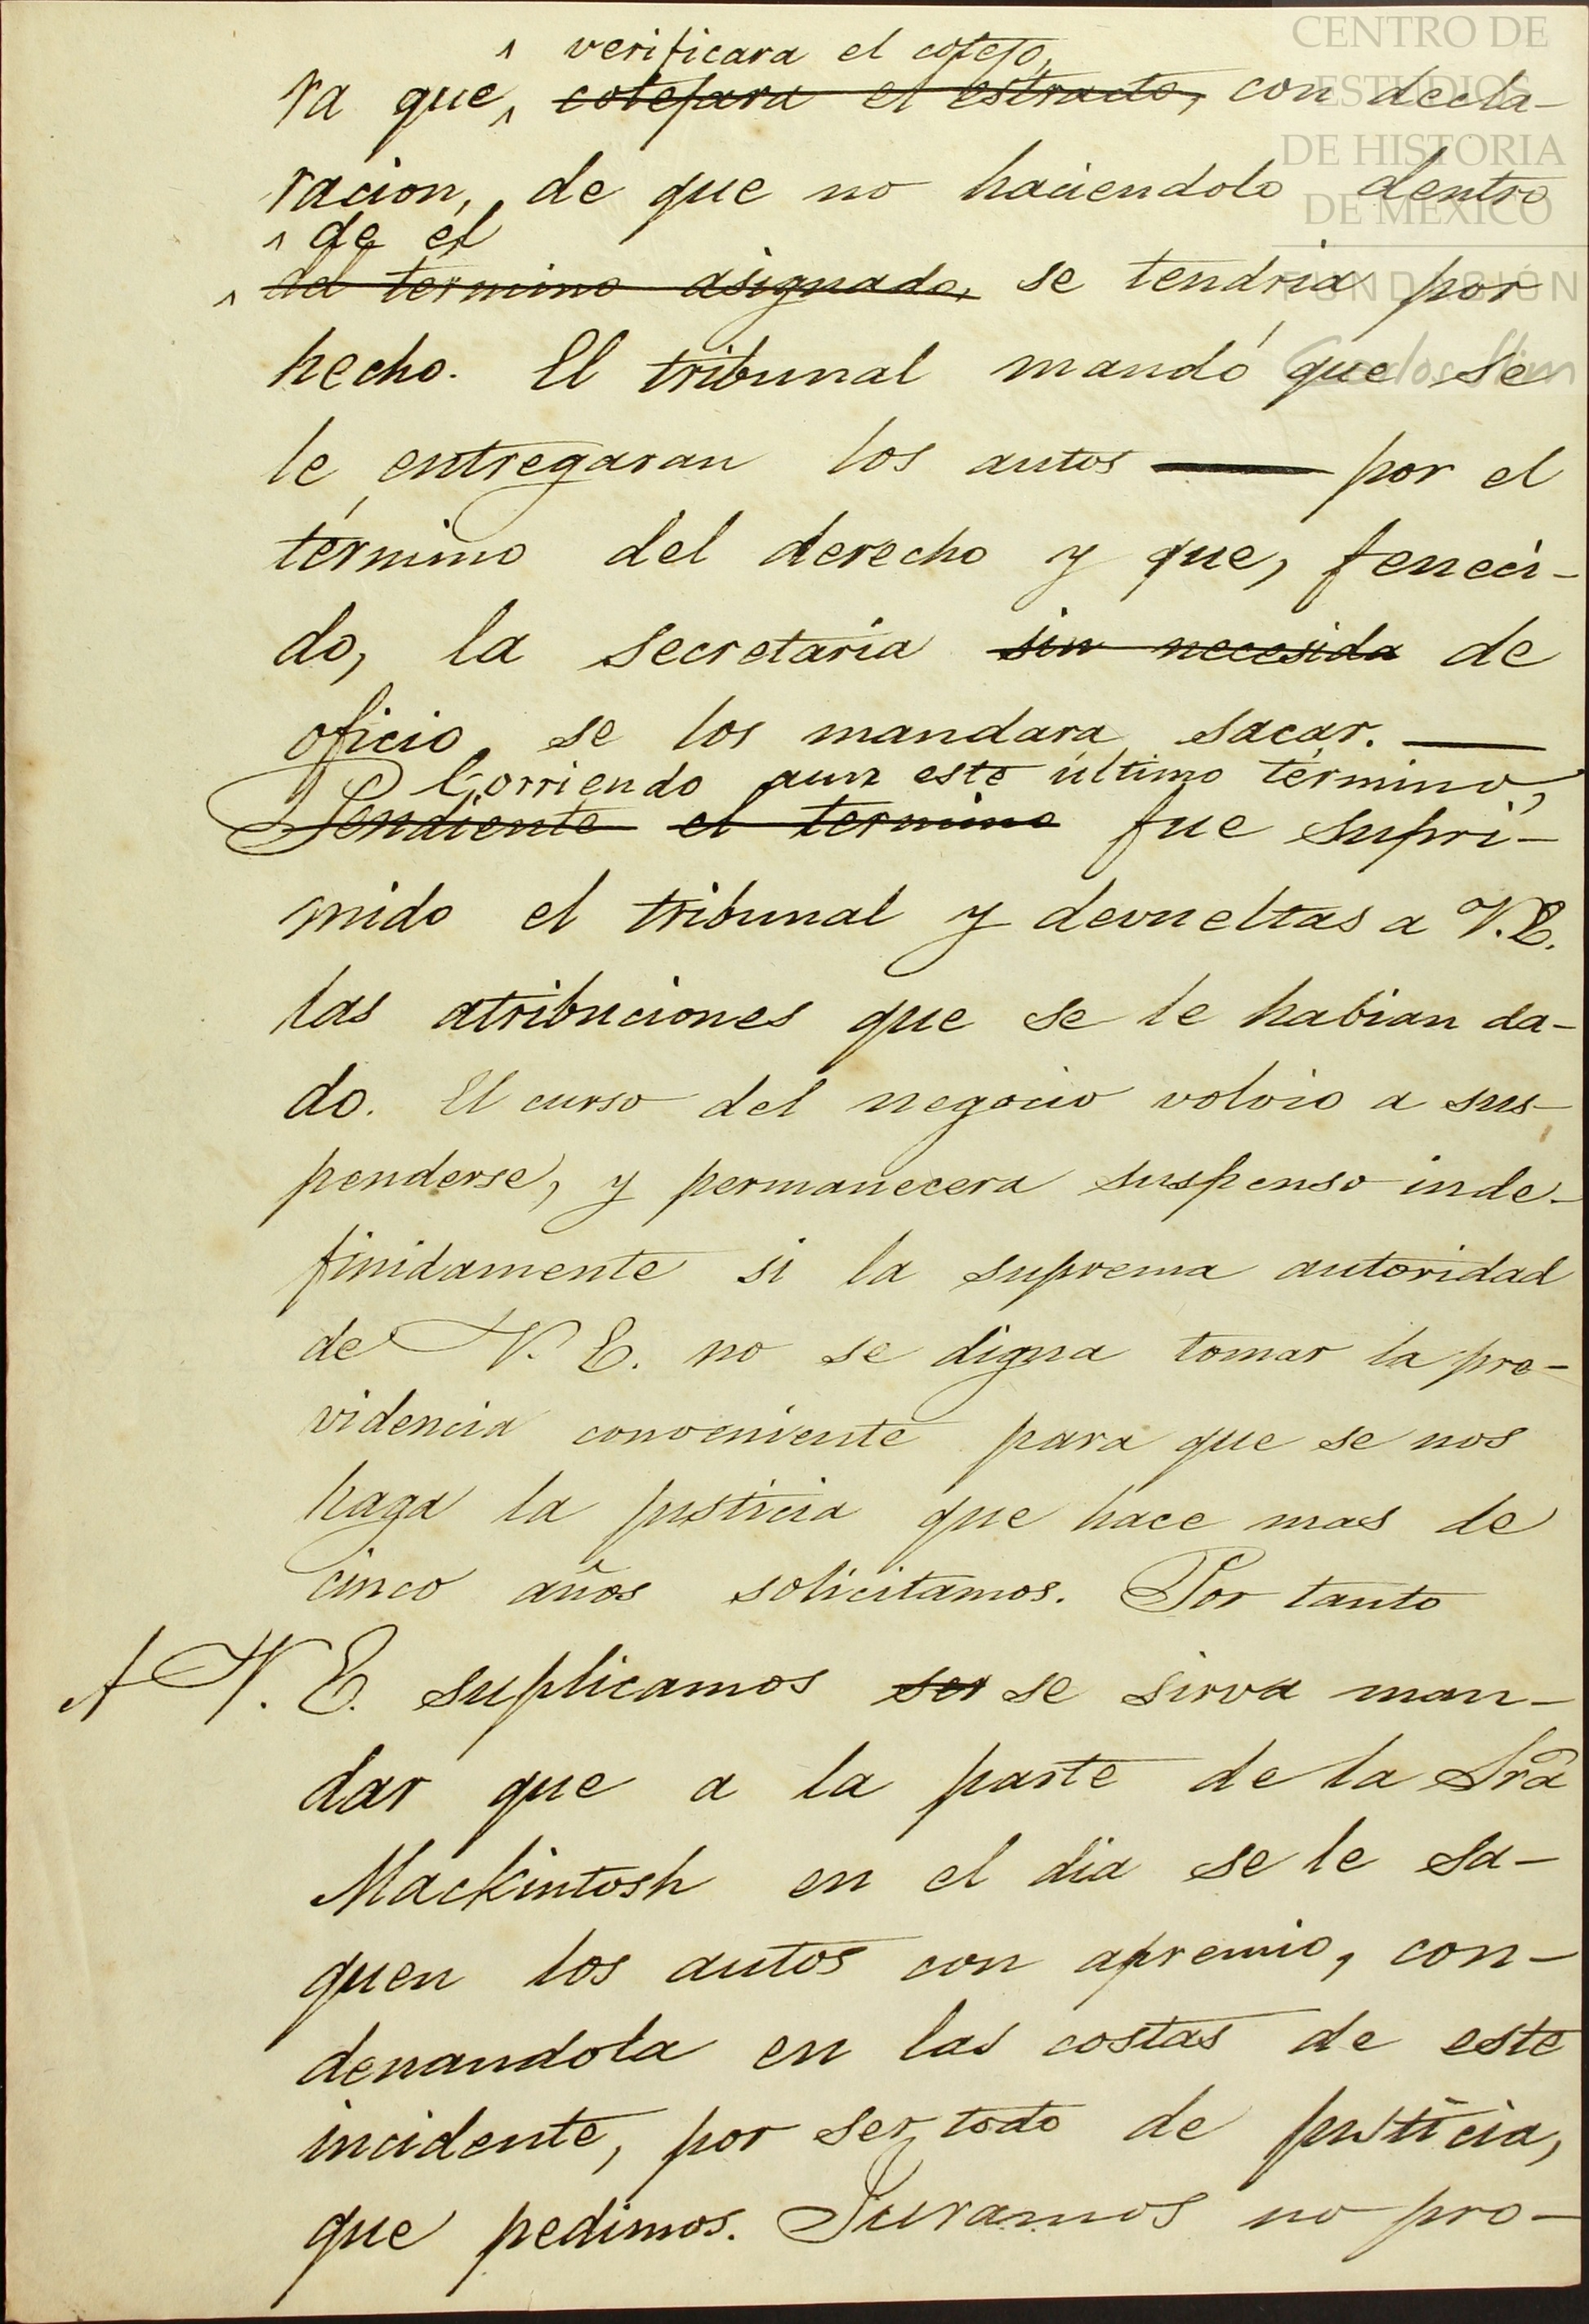 ^ verificara el cotejo,
ra que, ^ cotejara el estracto, con decla-
racion, de que no haciendolo dentro
^ de él
^ del término asignado, se tendria por
hecho. El tribunal mandó que se
le entregaran los autos — por el
término del derecho y que, feneci-
do, la secretaria sin necesida de
oficio se los mandara sacar. —
Corriendo aun este último término,
Pendiente el termino fue supri-
mido el tribunal y devueltas a V.E.
las atribuciones que se le habian da-
do. El curso del negocio volvio a sus-
penderse, y permanecera suspenso inde-
finidamente si la suprema autoridad
de V. E. no se digna tomar la pro-
videncia conveniente para que se nos
haga la justicia que hace mas de
cinco años solicitamos. Por tanto
A V. E. suplicamos ser se sirva man-
dar que a la parte de la Sra
Mackintosh en el dia se le sa-
quen los autos con apremio, con-
denandola en las costas de este
incidente, por ser todo de justicia,
que pedimos. Juramos no pro-
CENTRO DE
ESTUDIOS
DE HISTORIA
DE MEXICO
FUNDACIÓN
Carlos Slim